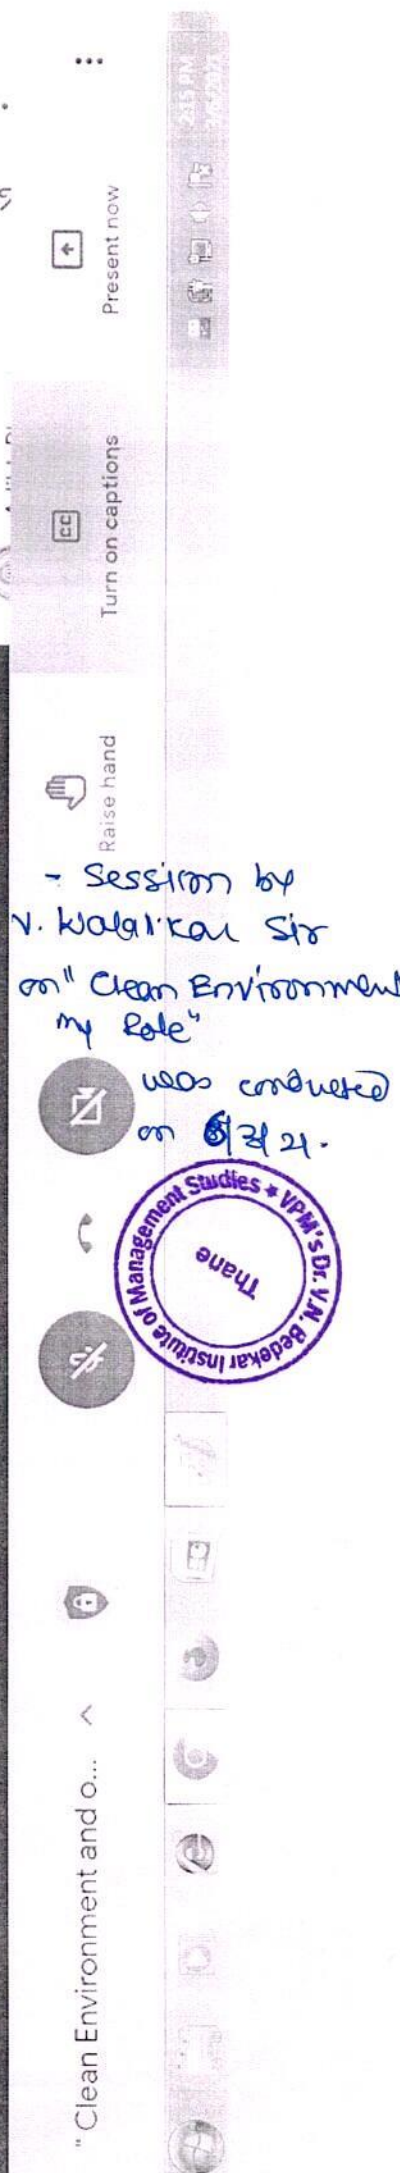 " Clean Environment and o...
Raise hand
Turn on captions
CC
Present now
2:15 PM
- Session by
on " Clean Environment
my Role"
was conducted
on
VPM's Dr. V.N. Bedekar Institute of Management Studies *
Thane